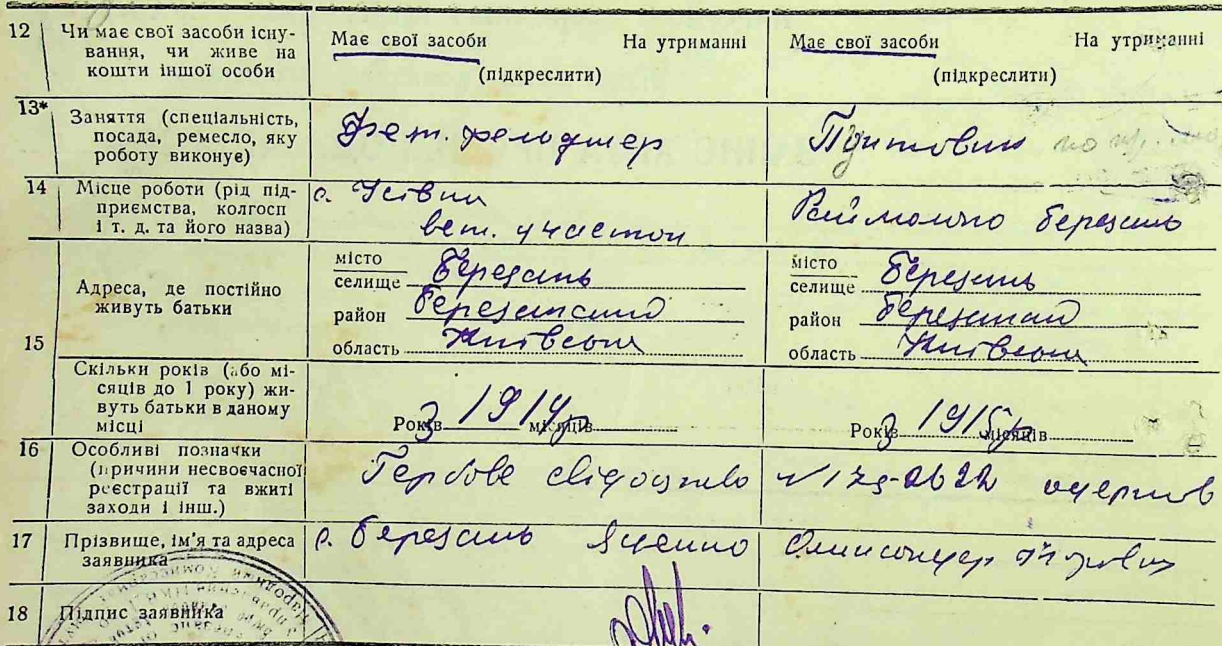 12 Чи має свої засоби існу-
вання, чи живе на
кошти іншої особи
Має свої засоби На утриманні
(підкреслити)
Має свої засоби На утриманні
(підкреслити)
13* Заняття (спеціальність,
посада, ремесло, яку
роботу виконує)
Вет. фельдшер
14 Місце роботи (рід під-
приємства, колгосп
і т. д. та його назва)
с.
вет. участок
Березань
15 Адреса, де постійно
живуть батьки
місто
селище Березань
район
область Київська
місто
селище Березань
район
область Київська
Скільки років (або мі-
сяців до 1 року) жи-
вуть батьки в даному
місці
Років з 1914 р місяців
Років з 1915 р місяців
16 Особливі позначки
(причини несвоєчасної
реєстрації та вжиті
заходи і інш.)
Гербове свідоцтво
17 Прізвище, ім'я та адреса
заявника
с. Березань Яценко
18 Підпис заявника